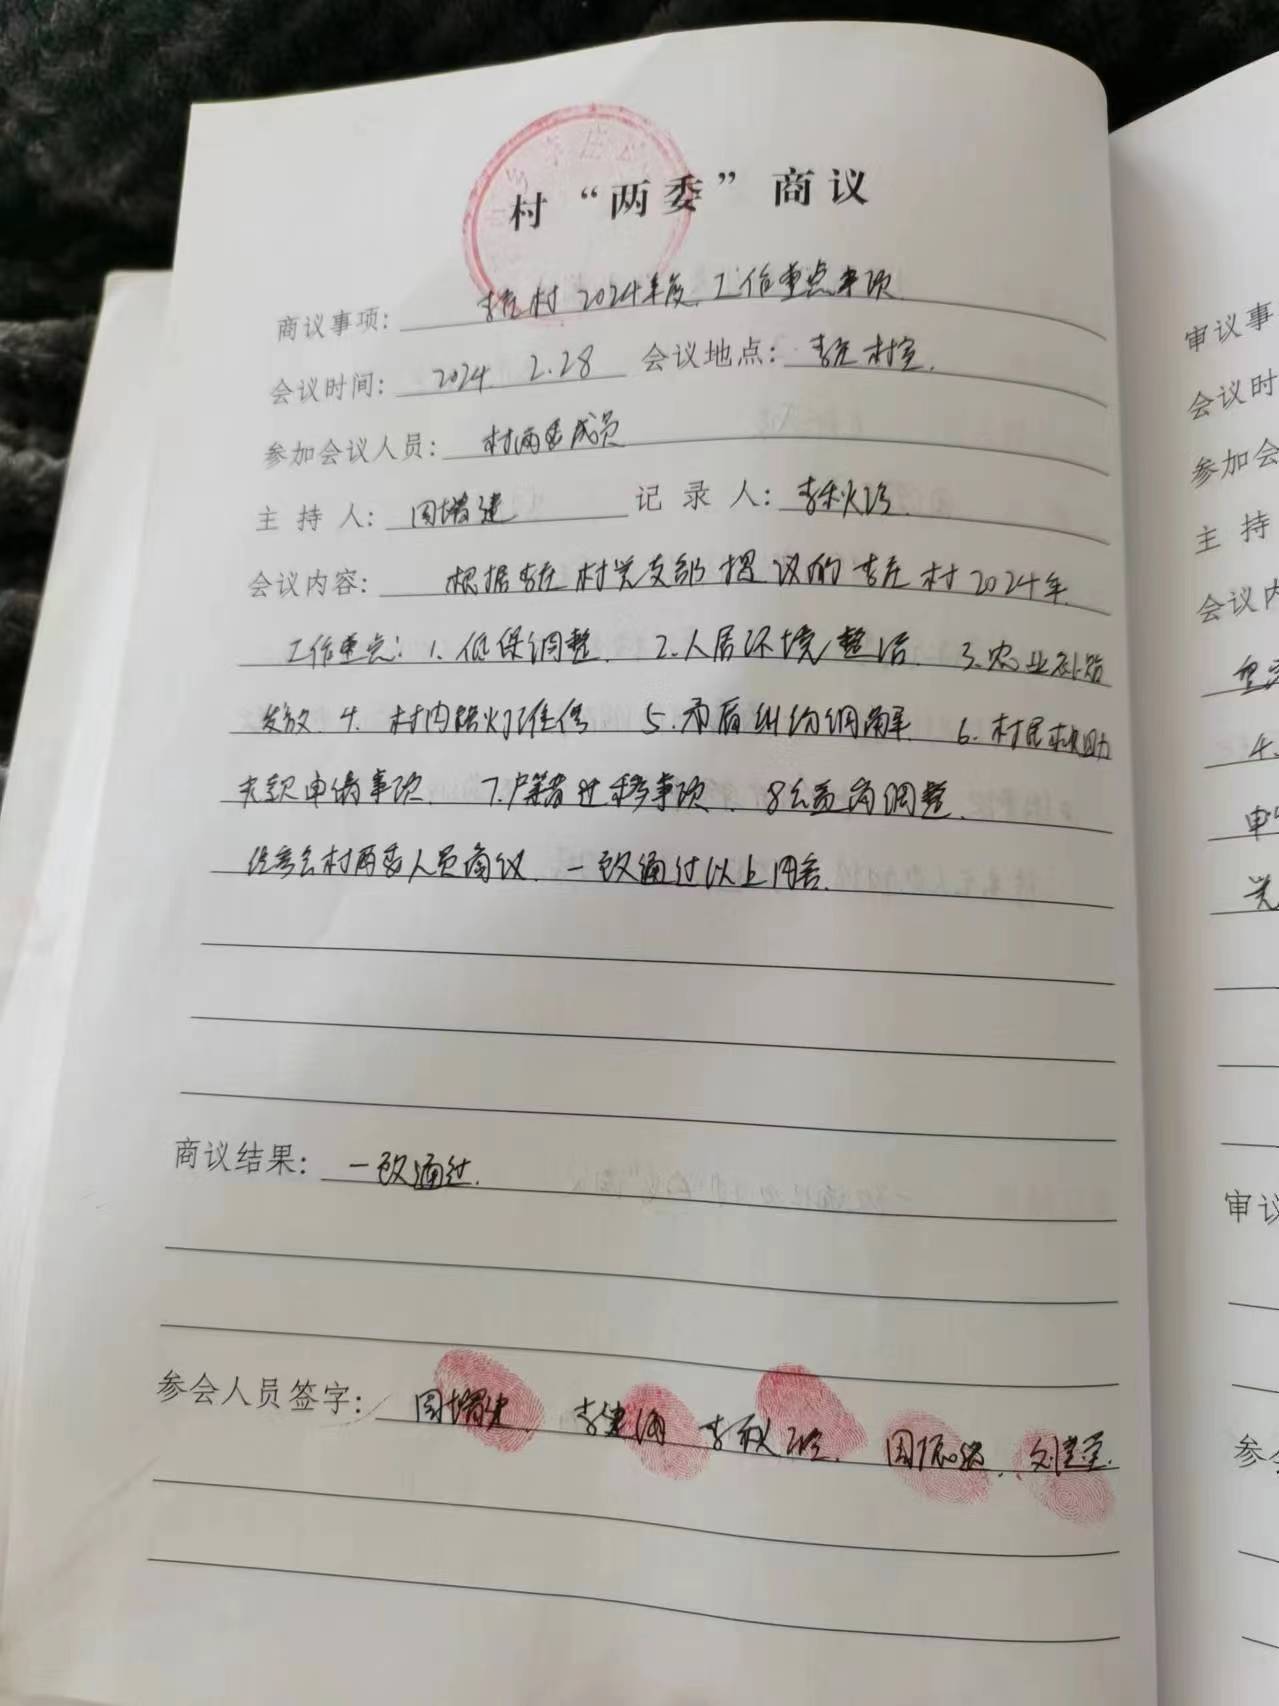 村“两委”商议
商议事项：李庄村2024年度工作重点事项
会议时间：2024.2.28 会议地点：李庄村室.
参加会议人员：村两委成员
主持人：周增建 记录人：李秋
会议内容：根据李庄村党支部提议的李庄村2024年
工作重点：1.低保调整. 2.人居环境整治. 3.农业补贴
发放 4.村内路灯维修 5.矛盾纠纷调解. 6.村民救助
申请事项. 7.户籍迁移事项. 8公益岗调整.
经参会村两委人员商议.一致通过以上内容.
商议结果：一致通过.
参会人员签字：周增建 李建 李秋 周振
审议事
会议时
参加会
主持
会议内
4.
申
党
审议
参会